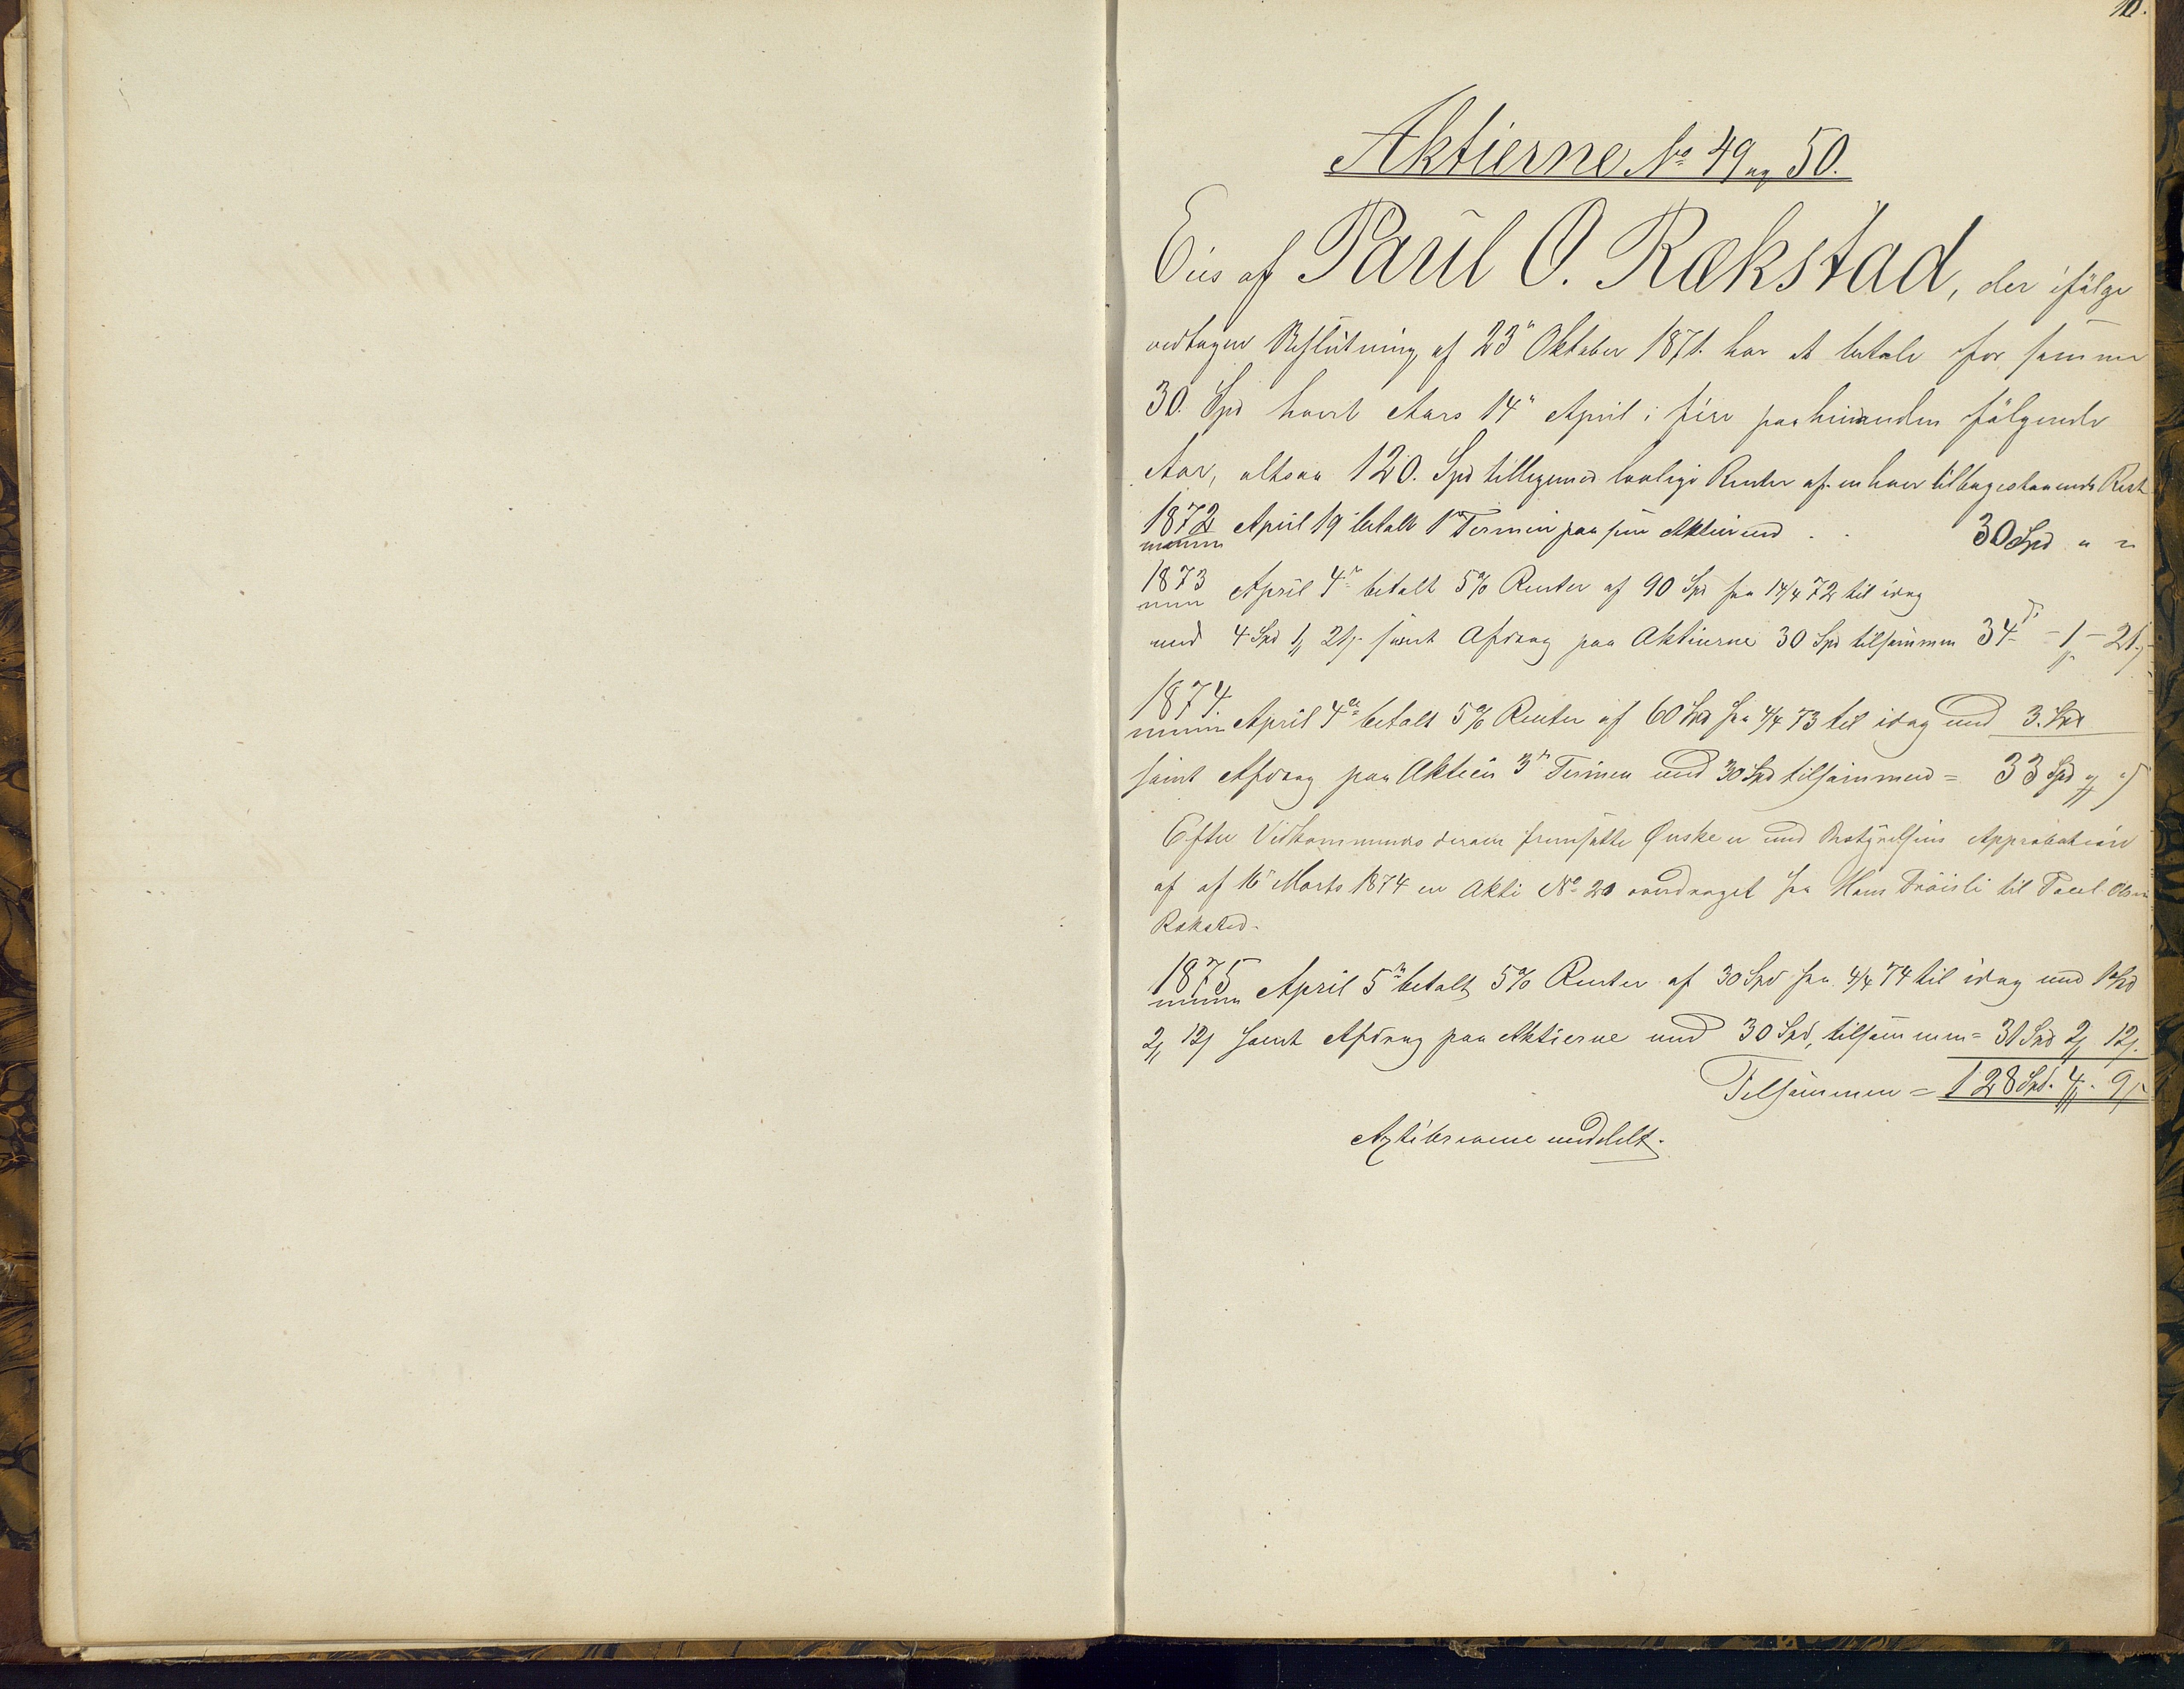 Aktierne No 49 og 50.
Eies af Paul O. Rækstad, der ifølge
vedtagen Beslutning af 23" Oktober 1871. har at betale for samme
30. Spd hvert Aars 14" April i fire paahinanden følgende
Aar, altsaa 120. Spd tilligemed lovlige Renter af enhver tilbagestaaende Rest
1872 April 19 betalt 1ste Termin paa sine Aktier med . . 30 Spd " "
1873 April 4de betalt 5% Renter af 90 Spd fra 14/4 72 til idag
med 4 Spd 1 ꝧ 21 ẞ samt Afdrag paa Aktierne 30 Spd tilsammen 34 - 1 - 21
1874. April 4de betalt 5% Renter af 60 Spd fra 4/4 73 til idag med 3. Spd
samt Afdrag paa Aktien 3die Termin med 30 Spd tilsammen = 33 Spd " "
Efter Vedkommendes derom fremsatte Ønske er med Bestyrelsens Approbation
af af 16de Marts 1874 en Aktie No 20 overdraget fra Hans Trøisli til Paul Olsen
Rækstad.
1875 April 5te betalt 5% Renter af 30 Spd fra 4/4 74 til idag med 1 Spd
2 12 samt Afdrag paa Aktierne med 30 Spd, tilsammen = 31 Spd 2 12.
Tilsammen = 128 Spd. 4. 9
Aktiebrevene meddelt.